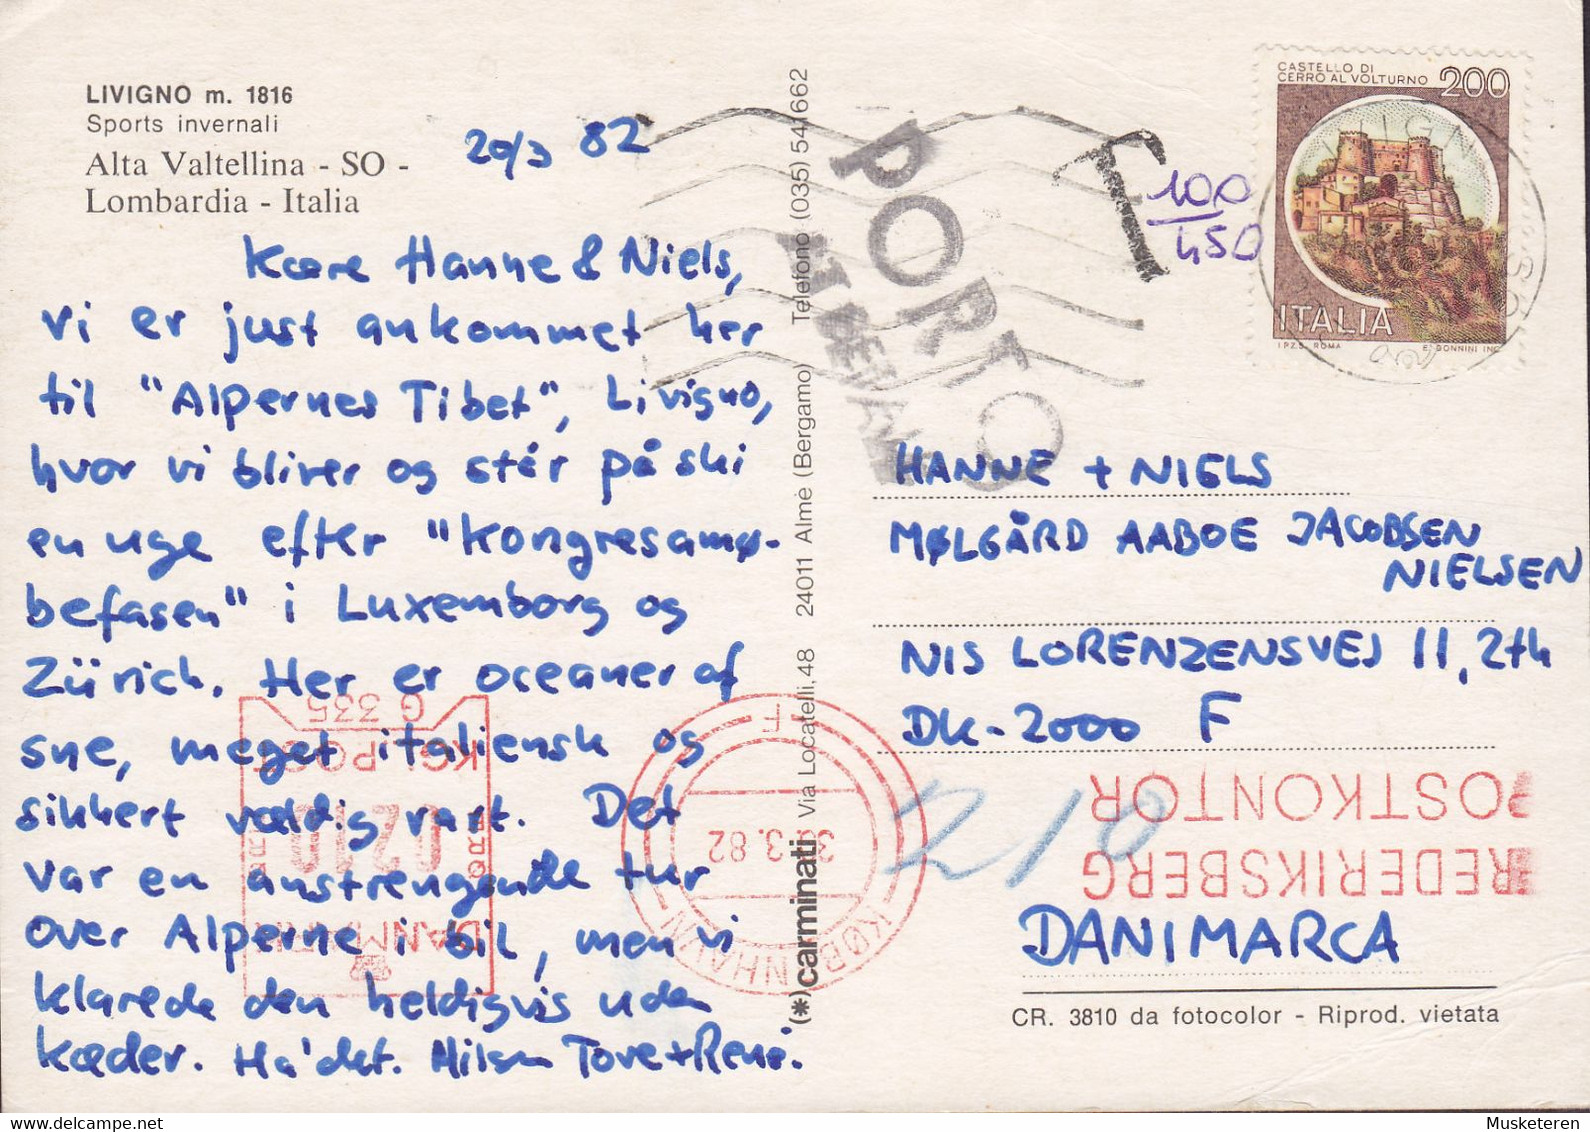 LIVIGNO m. 1816
Sports invernali
Alta Valtellina - SO -
Lombardia - Italia
20/3 82
Kære Hanne & Niels,
vi er just ankommet her
til "Alpernes Tibet", Livigno,
hvor vi bliver og står på ski
en uge efter "kongresamø-
befasen" i Luxemborg og
Zürich. Her er oceaner af
sne, meget italiensk og
sikkert vældig rart. Det
var en anstrengende tur
over Alperne i bil, men vi
klarede den heldigvis uden
kæder. Ha' det. Hilsen Tove + René.
(*)carminati Via Locatelli, 48 24011 Almè (Bergamo) Telefono (035) 541662
PORTO
AT BETALE
T 100/450
CASTELLO DI
CERRO AL VOLTURNO 200
ITALIA
I.P.Z.S. ROMA E. DONNINI INC.
LIVIGNO
HANNE + NIELS
MØLGÅRD AABOE JACOBSEN
NIELSEN
NIS LORENZENSVEJ 11, 2th
DK-2000 F
210
DANIMARCA
FREDERIKSBERG
POSTKONTOR
KØBENHAVN F
30.3.82
DANMARK
0210
KGL POST
G 335
CR. 3810 da fotocolor - Riprod. vietata
Musketeren